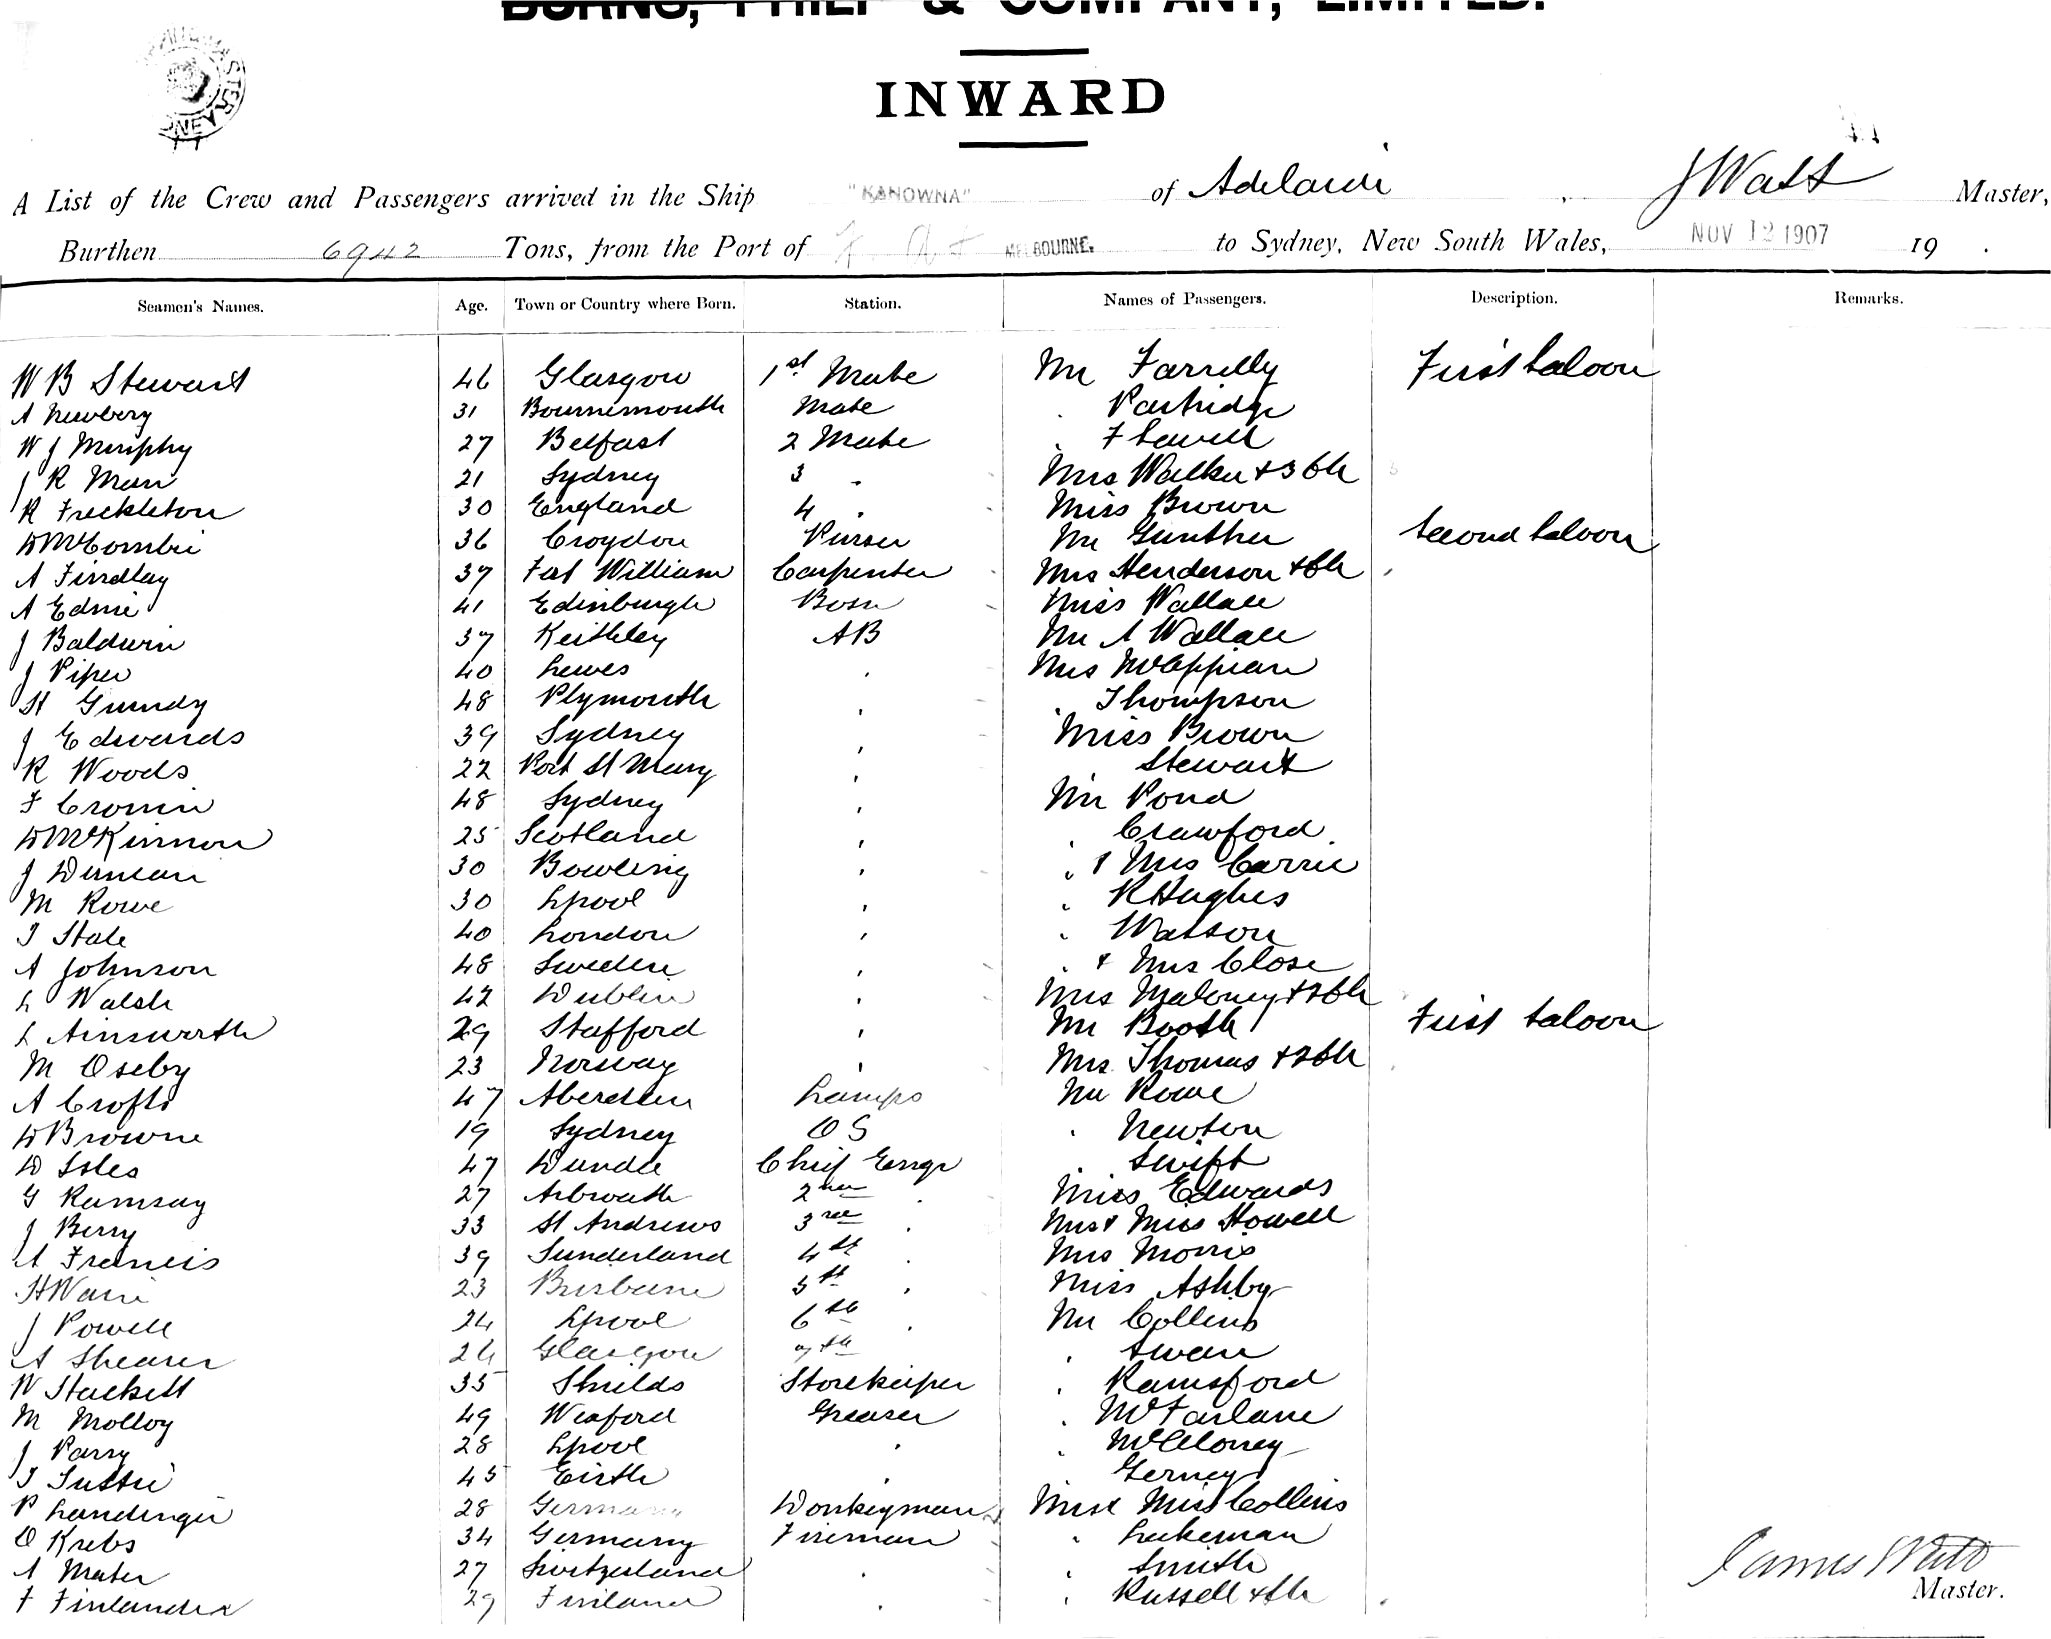 BURNS, PHILP & COMPANY, LIMITED.
INWARD
A List of the Crew and Passengers arrived in the Ship "KANOWNA" of Adelaide J Watt Master,
Burthen 6942 Tons, from the Port of MELBOURNE. to Sydney, New South Wales, NOV 12 1907 19 .
Seamen's Names. Age. Town or Country where Born. Station. Names of Passengers. Description. Remarks.
W B Stewart 46 Glasgow 1st Mate Mr Farrelly First Saloon
A Newbery 31 Bournemouth Mate . Partridge
W J Murphy 27 Belfast 2 Mate . F Sewell
J R Marr 21 Sydney 3 . Mrs Walker & 3 Ch
R Freckleton 30 England 4 . Miss Brown
D McCombie 36 Croydon Purser Mr Gunther Second Saloon
A Findlay 37 Fort William Carpenter Mrs Henderson & Ch
A Edmie 41 Edinburgh Bosn Miss Wallace
J Baldwin 37 Keithley AB Mr A Wallace
J Piper 40 Lewes . Mrs McAppian
H Grundy 48 Plymouth . . Thompson
J Edwards 39 Sydney . Miss Brown
R Woods 22 Port St Mary . . Stewart
F Cronin 48 Sydney . Mr Pond
D McKinnon 25 Scotland . . Crawford
J Duncan 30 Bowling . . & Mrs Carrie
M Rowe 30 Lpool . . R Hughes
T Stale 40 London . . Watson
A Johnson 48 Sweden . . & Mrs Close
L Walsh 42 Dublin . Mrs Maloney & 2 Ch
L Ainsworth 29 Stafford . Mr Booth First Saloon
M Oseby 23 Norway . Mrs Thomas & 2 Ch
A Crofts 47 Aberdeen Lamps Mr Rowe
D Browne 19 Sydney OS . Newton
D Isles 47 Dundee Chief Engr . Swift
G Ramsay 27 Arbroath 2nd . Miss Edwards
J Berry 33 St Andrews 3rd . Mrs & Miss Howell
A Francis 39 Sunderland 4th . Mrs Morris
H Warn 23 Brisbane 5th . Miss Ashby
J Powell 24 Lpool 6th . Mr Collins
A Shearer 24 Glasgow 7th . Swan
W Stackett 35 Shields Storekeeper . Ramsford
M Molloy 49 Wexford Greaser . McFarlane
J Parry 28 Lpool . . McEloney
T Suttie 45 Leith . . Gerney
P Landinger 28 Germany Donkeyman Mrs & Miss Collins
O Krebs 34 Germany Fireman . Lukeman
A Mater 27 Switzerland . . Smith
F Finlander 29 Finland . . Russell & Ch
James Watt
Master.